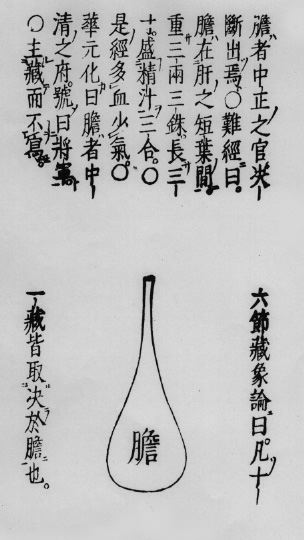 膽者中正之官决
斷出焉○難經曰
膽在肝之短葉間
重三兩三銖長三
寸盛精汁三合○
是經多血少氣○
華元化曰膽者中
清之府號曰將軍
○主藏而不瀉
六節藏象論曰凡十
膽
一藏皆取决於膽也